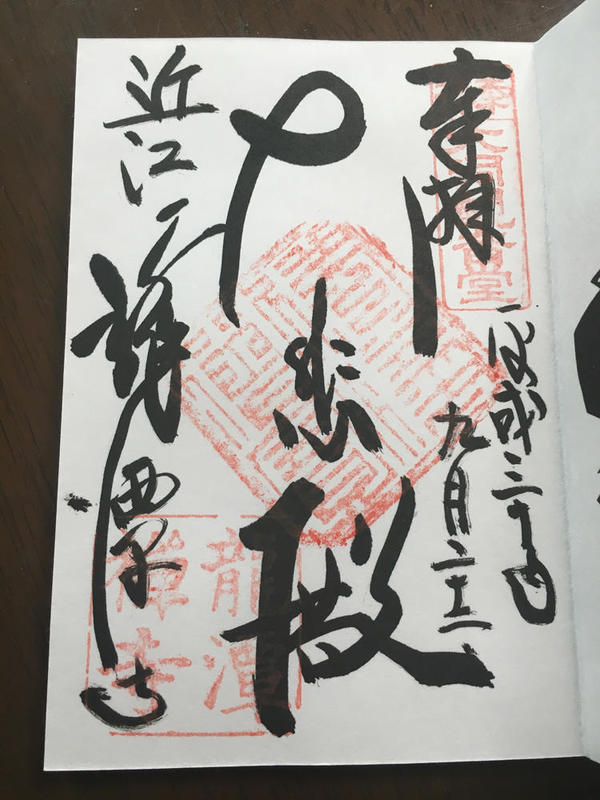 奉拝
平成三十年
九月二十二
大悲殿
近江
龍潭寺
龍潭
禪寺